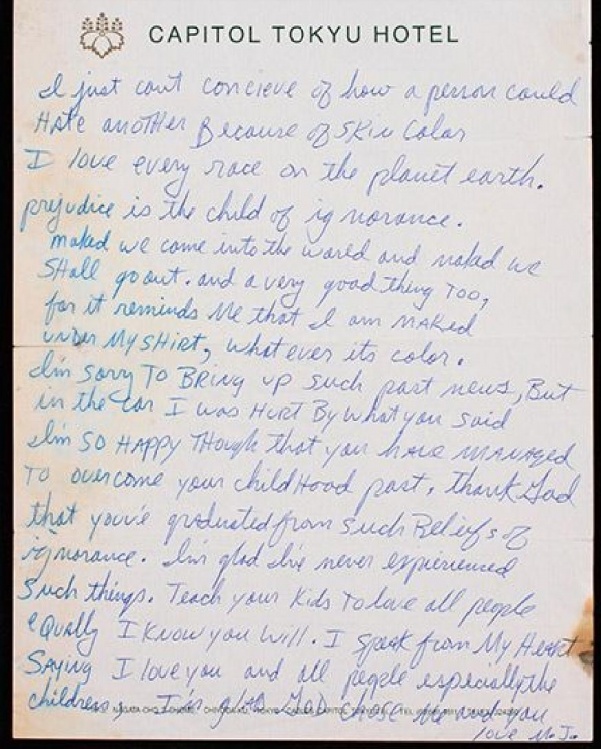 CAPITOL TOKYU HOTEL
I just cant concieve of how a person could
Hate another Because of Skin Color
I love every race on the planet earth.
prejudice is the child of ignorance.
naked we come into the world and naked we
SHall go out. and a very good thing Too,
for it reminds Me that I am naked
under My SHirt, what ever its color.
I'm Sorry To Bring up such past news, But
in the car I was Hurt By what you said
I'm SO HAPPY THough that you have Managed
To overcome your childHood past. Thank God
that you've graduated from such Beliefs of
ignorance. I'm glad I've never experienced
Such things. Teach your Kids To love all people
equally I Know you will. I speak from My Heart
Saying I love you and all people especially the
children, I'm glad God chose me and you
love M.J.